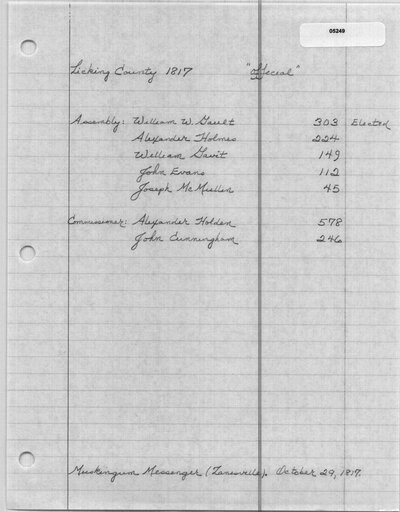 05249
Licking County 1817 "Official"
Assembly: William W. Gault 303 Elected
Alexander Holmes 224
William Gavit 149
John Evans 112
Joseph McMullen 45
Commissioner: Alexander Holden 578
John Cunningham 246
Muskingum Messenger (Zanesville). October 29, 1817.